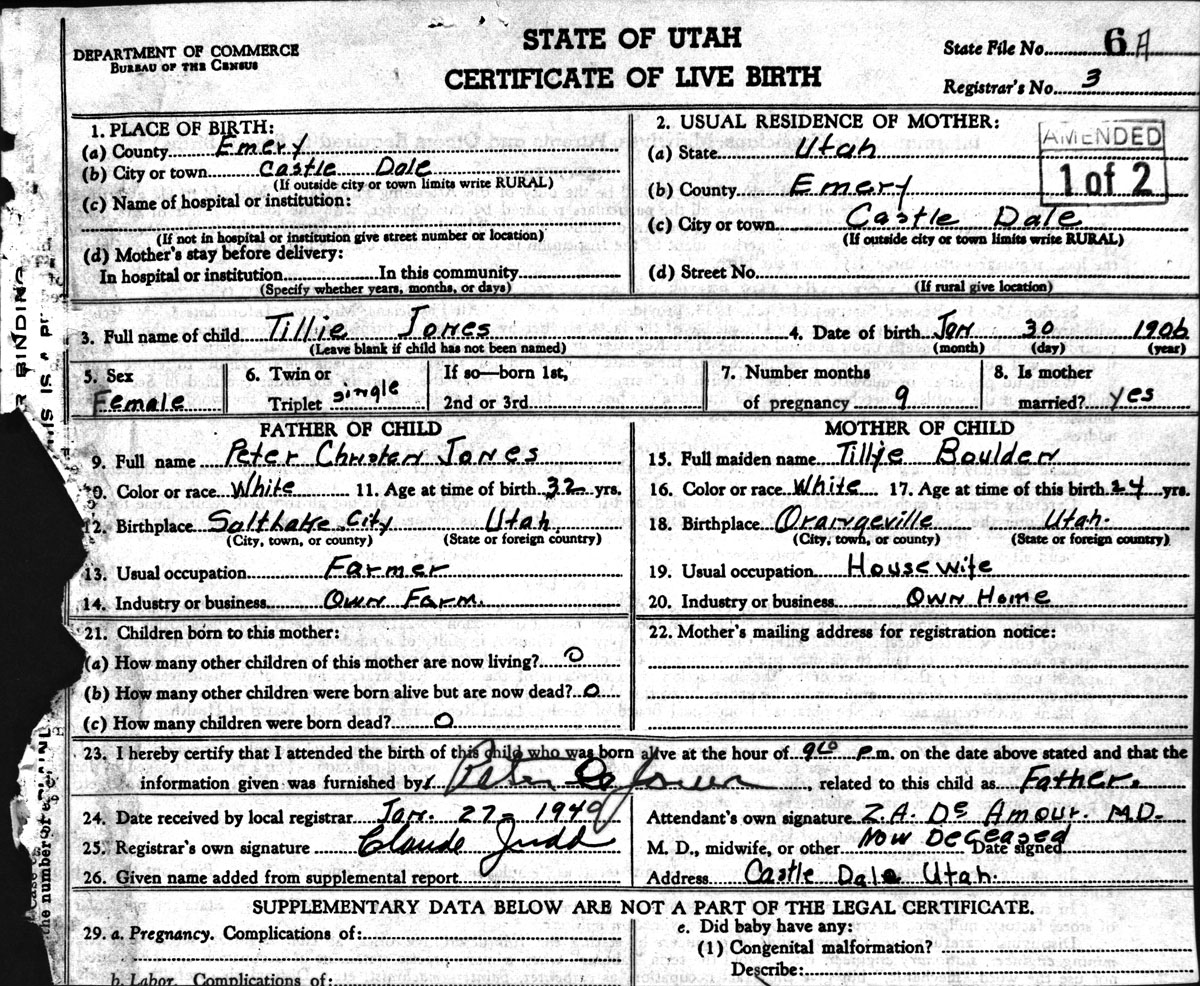 DEPARTMENT OF COMMERCE
BUREAU OF THE CENSUS
STATE OF UTAH
CERTIFICATE OF LIVE BIRTH
State File No. 6A
Registrar's No. 3
1. PLACE OF BIRTH:
(a) County Emery
(b) City or town Castle Dale
(If outside city or town limits write RURAL)
(c) Name of hospital or institution:
(If not in hospital or institution give street number or location)
(d) Mother's stay before delivery:
In hospital or institution In this community
(Specify whether years, months, or days)
2. USUAL RESIDENCE OF MOTHER:
(a) State Utah
AMENDED
1 of 2
(b) County Emery
(c) City or town Castle Dale
(If outside city or town limits write RURAL)
(d) Street No.
(If rural give location)
3. Full name of child Tillie Jones 4. Date of birth Jan 30 1906
(Leave blank if child has not been named) (month) (day) (year)
5. Sex Female
6. Twin or Triplet single
If so—born 1st, 2nd or 3rd
7. Number months of pregnancy 9
8. Is mother married? yes
FATHER OF CHILD
9. Full name Peter Christen Jones
10. Color or race White 11. Age at time of birth 32 yrs.
12. Birthplace Salt Lake City Utah
(City, town, or county) (State or foreign country)
13. Usual occupation Farmer
14. Industry or business Own Farm.
MOTHER OF CHILD
15. Full maiden name Tillie Boulden
16. Color or race White 17. Age at time of this birth 24 yrs.
18. Birthplace Orangeville Utah.
(City, town, or county) (State or foreign country)
19. Usual occupation Housewife
20. Industry or business Own Home
21. Children born to this mother:
(a) How many other children of this mother are now living? 0
(b) How many other children were born alive but are now dead? 0
(c) How many children were born dead? 0
22. Mother's mailing address for registration notice:
23. I hereby certify that I attended the birth of this child who was born alive at the hour of 9 P.m. on the date above stated and that the
information given was furnished by Peter C Jones, related to this child as Father.
24. Date received by local registrar Jan. 27 - 1949
25. Registrar's own signature Claude Judd
26. Given name added from supplemental report
Attendant's own signature Z.A. De Amour. M.D.
M. D., midwife, or other Now Deceased Date signed
Address Castle Dale Utah.
SUPPLEMENTARY DATA BELOW ARE NOT A PART OF THE LEGAL CERTIFICATE.
29. a. Pregnancy. Complications of:
b. Labor. Complications of:
e. Did baby have any:
(1) Congenital malformation?
Describe: